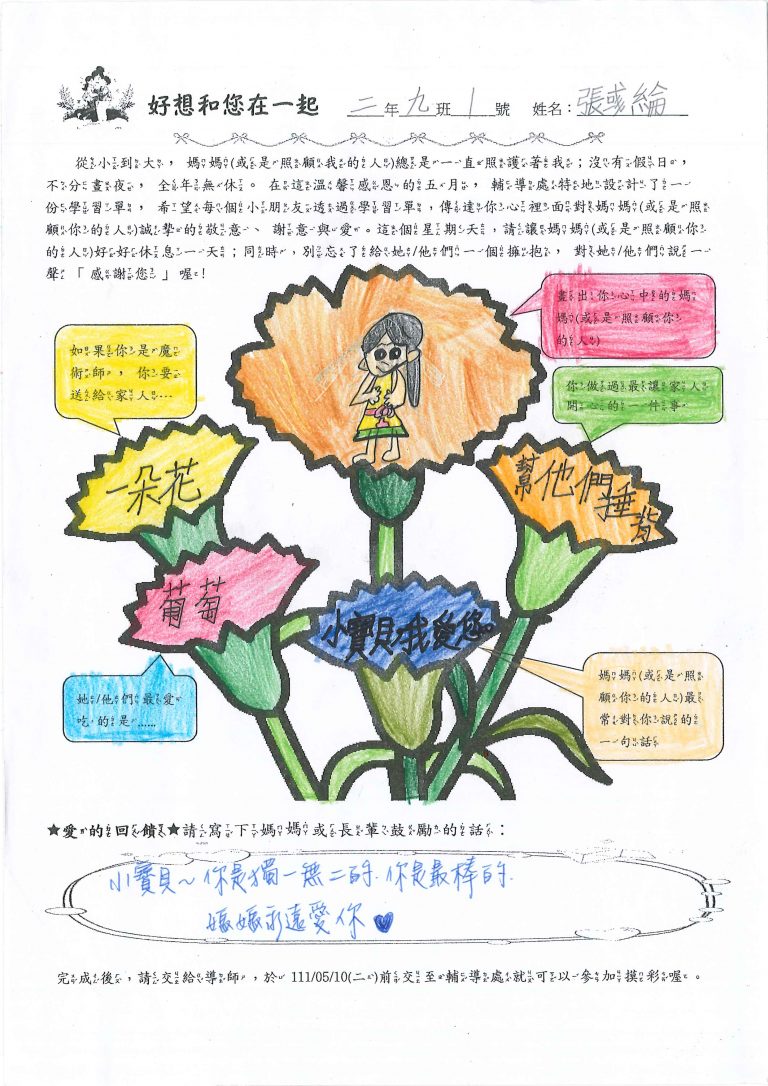 好想和您在一起 二年九班1號 姓名：張彧綸
從小到大，媽媽(或是照顧我的人)總是一直照護著我；沒有假日，
不分晝夜，全年無休。在這溫馨感恩的五月，輔導處特地設計了一
份學習單，希望每個小朋友透過學習單，傳達你心裡面對媽媽(或是照
顧你的人)誠摯的敬意、謝意與愛。這個星期天，請讓媽媽(或是照顧你
的人)好好休息一天；同時，別忘了給她/他們一個擁抱，對她/他們說一
聲「感謝您」喔！
畫出你心中的媽
媽(或是照顧你
的人)
如果你是魔
術師，你要
送給家人…
你做過最讓家人
開心的一件事
一朵花
幫他們捶背
葡萄
小寶貝，我愛您。
她/他們最愛
吃的是……
媽媽(或是照
顧你的人)最
常對你說的
一句話
★愛的回饋★請寫下媽媽或長輩鼓勵的話：
小寶貝~你是獨一無二的.你是最棒的.
媽媽永遠愛你♥
完成後，請交給導師，於 111/05/10(二)前交至輔導處就可以參加摸彩喔。